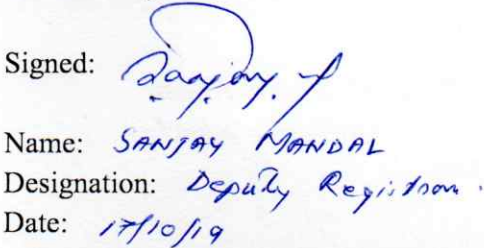 Signed: Sanjay
Name: SANJAY MANDAL
Designation: Deputy Registrar.
Date: 17/10/19